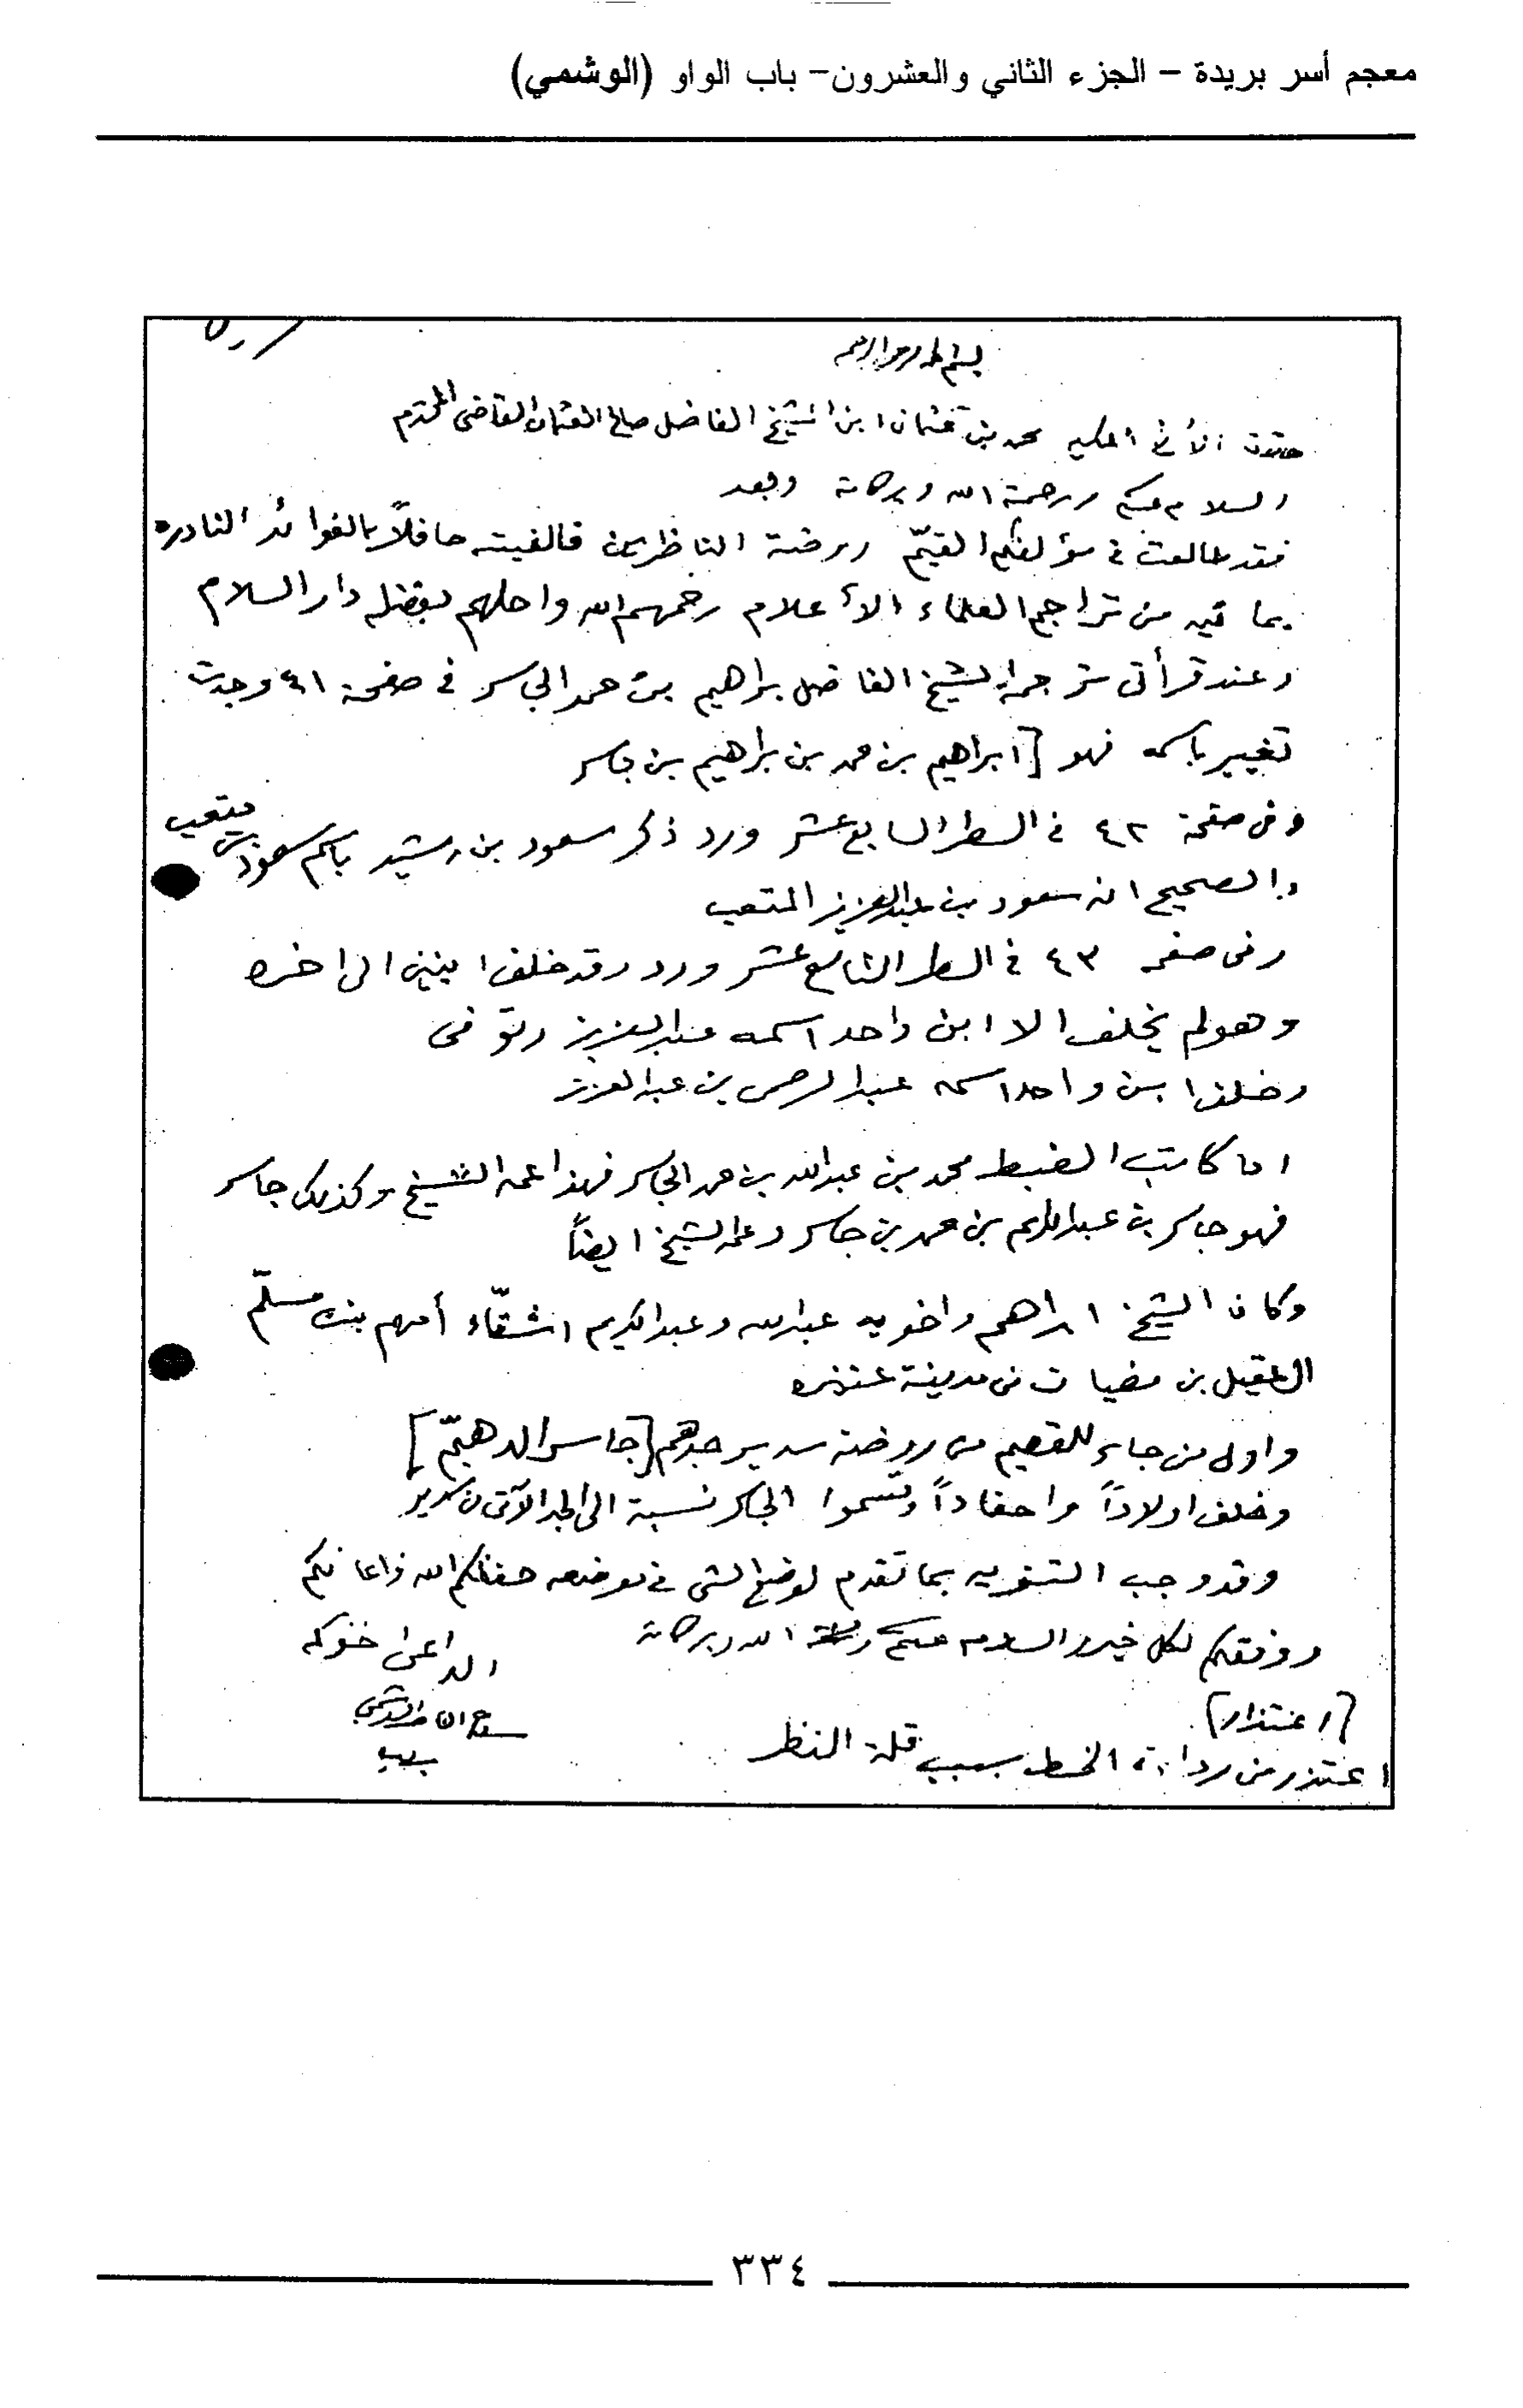 معجم أسر بريدة – الجزء الثاني والعشرون– باب الواو (الوشمي)
بسم الله الرحمن الرحيم
الأخ المكرم محمد بن عثمان ابن الشيخ الفاضل صالح العثمان القاضي المحترم
السلام عليكم ورحمة الله وبركاته وبعد
فقد طالعت في مؤلفكم القيّم روضة الناظرين فالفيته حافلاً بالفوائد النادره
بما فيه من تراجم العلماء الأعلام رحمهم الله واحلهم بفضله دار السلام
وعند قرأتي ترجمة الشيخ الفاضل براهيم بن حمد الجاسر في صفحة ٤١ وجدت
تغيير باسمه فهو [ابراهيم بن حمد بن براهيم بن جاسر
وفي صفحة ٤٢ في السطر السابع عشر ورد ذكر سعود بن رشيد باسم سعود بن متعب
والصحيح انه سعود بن عبدالعزيز المتعب
وفي صفحه ٤٣ في السطر التاسع عشر ورد وقد خلف ابنين الى اخره
وهو لم يخلف الا ابن واحد اسمه عبدالعزيز وتوفى
وخلف ابن واحد اسمه عبدالرحمن بن عبدالعزيز
اما كاتب الضبط محمد بن عبدالله بن حمد الجاسر فهذا عمه الشيخ وكذلك جاسر
فهو جاسر بن عبدالكريم بن حمد بن جاسر وعمه الشيخ ايضاً
وكان الشيخ ابراهيم واخويه عبدالله وعبدالكريم اشقّاء أمهم بنت مسلّم
العقيل بن مضيان من مدينة عنيزه
واول من جاء للقصيم من روضة سدير جدهم [جاسر الدهيّم]
وخلف اولاداً واحفاداً وتسموا الجاسر نسبة الى الجد الآتي من سدير
وقد وجب التنويه بما تقدم لوضع الشي في موضعه حفظكم الله واعانكم
ووفقكم لكل خير والسلام عليكم ورحمة الله وبركاته
الداعي اخوكم
صالح الوشمي
[اعتذار]
اعتذر من رداءة الخط بسبب قلة النظر
٣٣٤